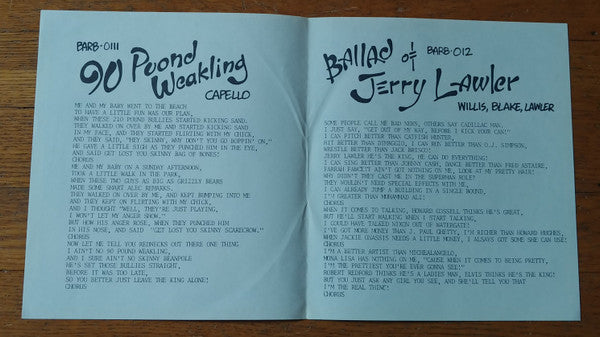 BARB-0111
90 Pound
Weakling
CAPELLO
ME AND MY BABY WENT TO THE BEACH
TO HAVE A LITTLE FUN WAS OUR PLAN,
WHEN THESE 210 POUND BULLIES STARTED KICKING SAND.
THEY WALKED ON OVER BY ME AND STARTED KICKING SAND
IN MY FACE, AND THEY STARTED FLIRTING WITH MY CHICK,
AND THEY SAID, "HEY SKINNY, WHY DON'T YOU GO HOPPIN' ON,"
HE GAVE A LITTLE SIGH AS THEY PUNCHED HIM IN THE EYE,
AND SAID GET LOST YOU SKINNY BAG OF BONES!
CHORUS
ME AND MY BABY ON A SUNDAY AFTERNOON,
TOOK A LITTLE WALK IN THE PARK,
WHEN THESE TWO GUYS AS BIG AS GRIZZLY BEARS
MADE SOME SMART ALEC REMARKS.
THEY WALKED ON OVER BY ME, AND KEPT BUMPING INTO ME
AND THEY KEPT ON FLIRTING WITH MY CHICK,
AND I THOUGHT "WELL, THEY'RE JUST PLAYING,
I WON'T LET MY ANGER SHOW."
BUT HOW HIS ANGER ROSE, WHEN THEY PUNCHED HIM
IN HIS NOSE, AND SAID "GET LOST YOU SKINNY SCARECROW."
CHORUS
NOW LET ME TELL YOU REDNECKS OUT THERE ONE THING
I AIN'T NO 90 POUND WEAKLING,
AND I SURE AIN'T NO SKINNY BEANPOLE
HE'S SET THOSE BULLIES STRAIGHT,
BEFORE IT WAS TOO LATE,
SO YOU BETTER JUST LEAVE THE KING ALONE!
CHORUS
Ballad of BARB-012
Jerry Lawler
WILLIS, BLAKE, LAWLER
SOME PEOPLE CALL ME BAD NEWS, OTHERS SAY CADILLAC MAN.
I JUST SAY, "GET OUT OF MY WAY, BEFORE I KICK YOUR CAN!"
I CAN PITCH BETTER THAN CATFISH HUNTER,
HIT BETTER THAN DIMAGGIO, I CAN RUN BETTER THAN O.J. SIMPSON;
WRESTLE BETTER THAN JACK BRISCO!
JERRY LAWLER HE'S THE KING, HE CAN DO EVERYTHING!
I CAN SING BETTER THAN JOHNNY CASH, DANCE BETTER THAN FRED ASTAIRE,
FARRAH FAWCETT AIN'T GOT NOTHING ON ME, LOOK AT MY PRETTY HAIR!
WHY DIDN'T THEY CAST ME IN THE SUPERMAN ROLE?
THEY WOULDN'T NEED SPECIAL EFFECTS WITH ME,
I CAN ALREADY JUMP A BUILDING IN A SINGLE BOUND,
I'M GREATER THAN MUHAMMAD ALI!
CHORUS
WHEN IT COMES TO TALKING, HOWARD COSSELL THINKS HE'S GREAT,
BUT HE'LL START WALKING WHEN I START TALKING,
I COULD HAVE TALKED NIXON OUT OF WATERGATE!
I'VE GOT MORE MONEY THAN J. PAUL GHETTY, I'M RICHER THAN HOWARD HUGHES,
WHEN JACKIE ONASSIS NEEDS A LITTLE MONEY, I ALWAYS GOT SOME SHE CAN USE!
CHORUS
I'M A BETTER ARTIST THAN MICHAELANGELO,
MONA LISA HAS NOTHING ON ME, "CAUSE WHEN IT COMES TO BEING PRETTY,
I'M THE PRETTIEST YOU'RE EVER GONNA SEE!"
ROBERT REDFORD THINKS HE'S A LADIES MAN, ELVIS THINKS HE'S THE KING!
BUT YOU JUST ASK ANY GIRL YOU SEE, AND SHE'LL TELL YOU THAT
I'M THE REAL THING!
CHORUS